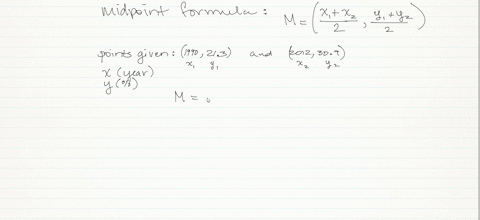 midpoint formula: M = (x₁+x₂/2, y₁+y₂/2)
points given: (1990, 21.3) and (2012, 30.9)
x₁ y₁ x₂ y₂
x (year)
y (%)
M =